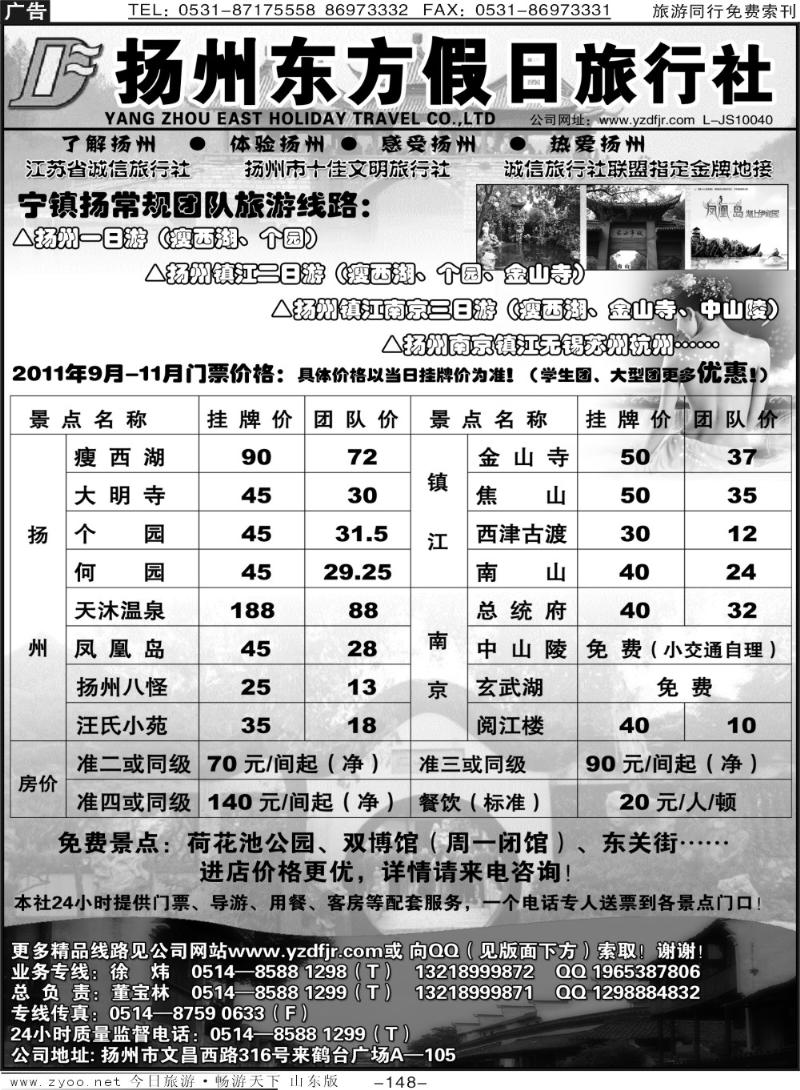 广告
TEL: 0531-87175558 86973332 FAX: 0531-86973331
旅游同行免费索刊
扬州东方假日旅行社
YANG ZHOU EAST HOLIDAY TRAVEL CO.,LTD
公司网址: www.yzdfjr.com L-JS10040
了解扬州 ● 体验扬州 ● 感受扬州 ● 热爱扬州
江苏省诚信旅行社 扬州市十佳文明旅行社 诚信旅行社联盟指定金牌地接
宁镇扬常规团队旅游线路:
凤凰岛
△扬州一日游（瘦西湖、个园）
△扬州镇江二日游（瘦西湖、个园、金山寺）
△扬州镇江南京三日游（瘦西湖、金山寺、中山陵）
△扬州南京镇江无锡苏州杭州……
2011年9月-11月门票价格: 具体价格以当日挂牌价为准!（学生团、大型团更多优惠!）
景点名称 挂牌价 团队价 景点名称 挂牌价 团队价
扬州 镇江 南京
瘦西湖 90 72 金山寺 50 37
大明寺 45 30 焦山 50 35
个园 45 31.5 西津古渡 30 12
何园 45 29.25 南山 40 24
天沐温泉 188 88 总统府 40 32
凤凰岛 45 28 中山陵 免费（小交通自理）
扬州八怪 25 13 玄武湖 免费
汪氏小苑 35 18 阅江楼 40 10
房价
准二或同级 70 元/间起（净） 准三或同级 90 元/间起（净）
准四或同级 140 元/间起（净） 餐饮（标准） 20 元/人/顿
免费景点: 荷花池公园、双博馆（周一闭馆）、东关街……
进店价格更优，详情请来电咨询!
本社24小时提供门票、导游、用餐、客房等配套服务，一个电话专人送票到各景点门口!
更多精品线路见公司网站www.yzdfjr.com或 向QQ（见版面下方）索取! 谢谢!
业务专线: 徐 炜 0514—8588 1298（T） 13218999872 QQ 1965387806
总 负 责: 董宝林 0514—8588 1299（T） 13218999871 QQ 1298884832
专线传真: 0514—8759 0633（F）
24小时质量监督电话: 0514—8588 1299（T）
公司地址: 扬州市文昌西路316号来鹤台广场A—105
www.zyoo.net 今日旅游·畅游天下 山东版 -148-